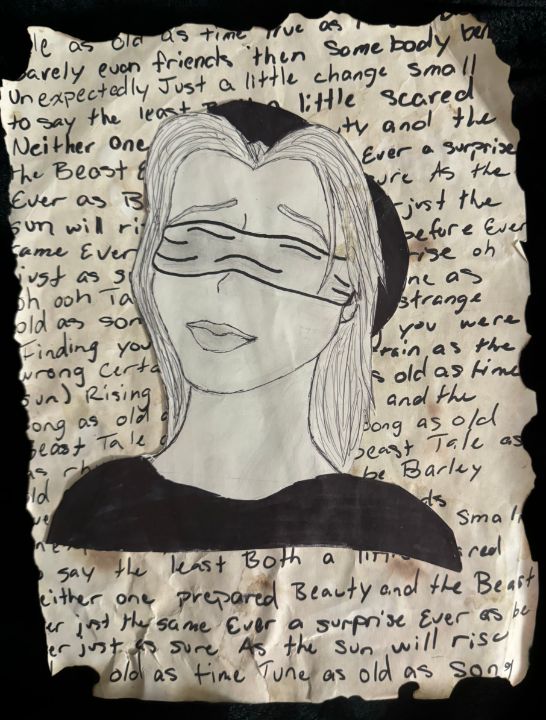 le as old as time True as
barely even friends then Somebody ben
Unexpectedly Just a little change small
to say the least Both a little scared
Neither one ty and the
the Beast Ever a surprise
Ever as B sure As the
sun will ri just the
same Ever before Ever
just as s rise oh
oh ooh Ta ne as
old as son strange
Finding you you were
wrong Certa rain as the
sun) Rising s old as time
song as old and the
beast Tale song as old
as rh beast Tale as
old be Barley
ds Small
say the least Both a little red
either one prepared Beauty and the Beast
er just the same Ever a surprise Ever as be
er just as sure As the sun will rise
old as time Tune as old as Song